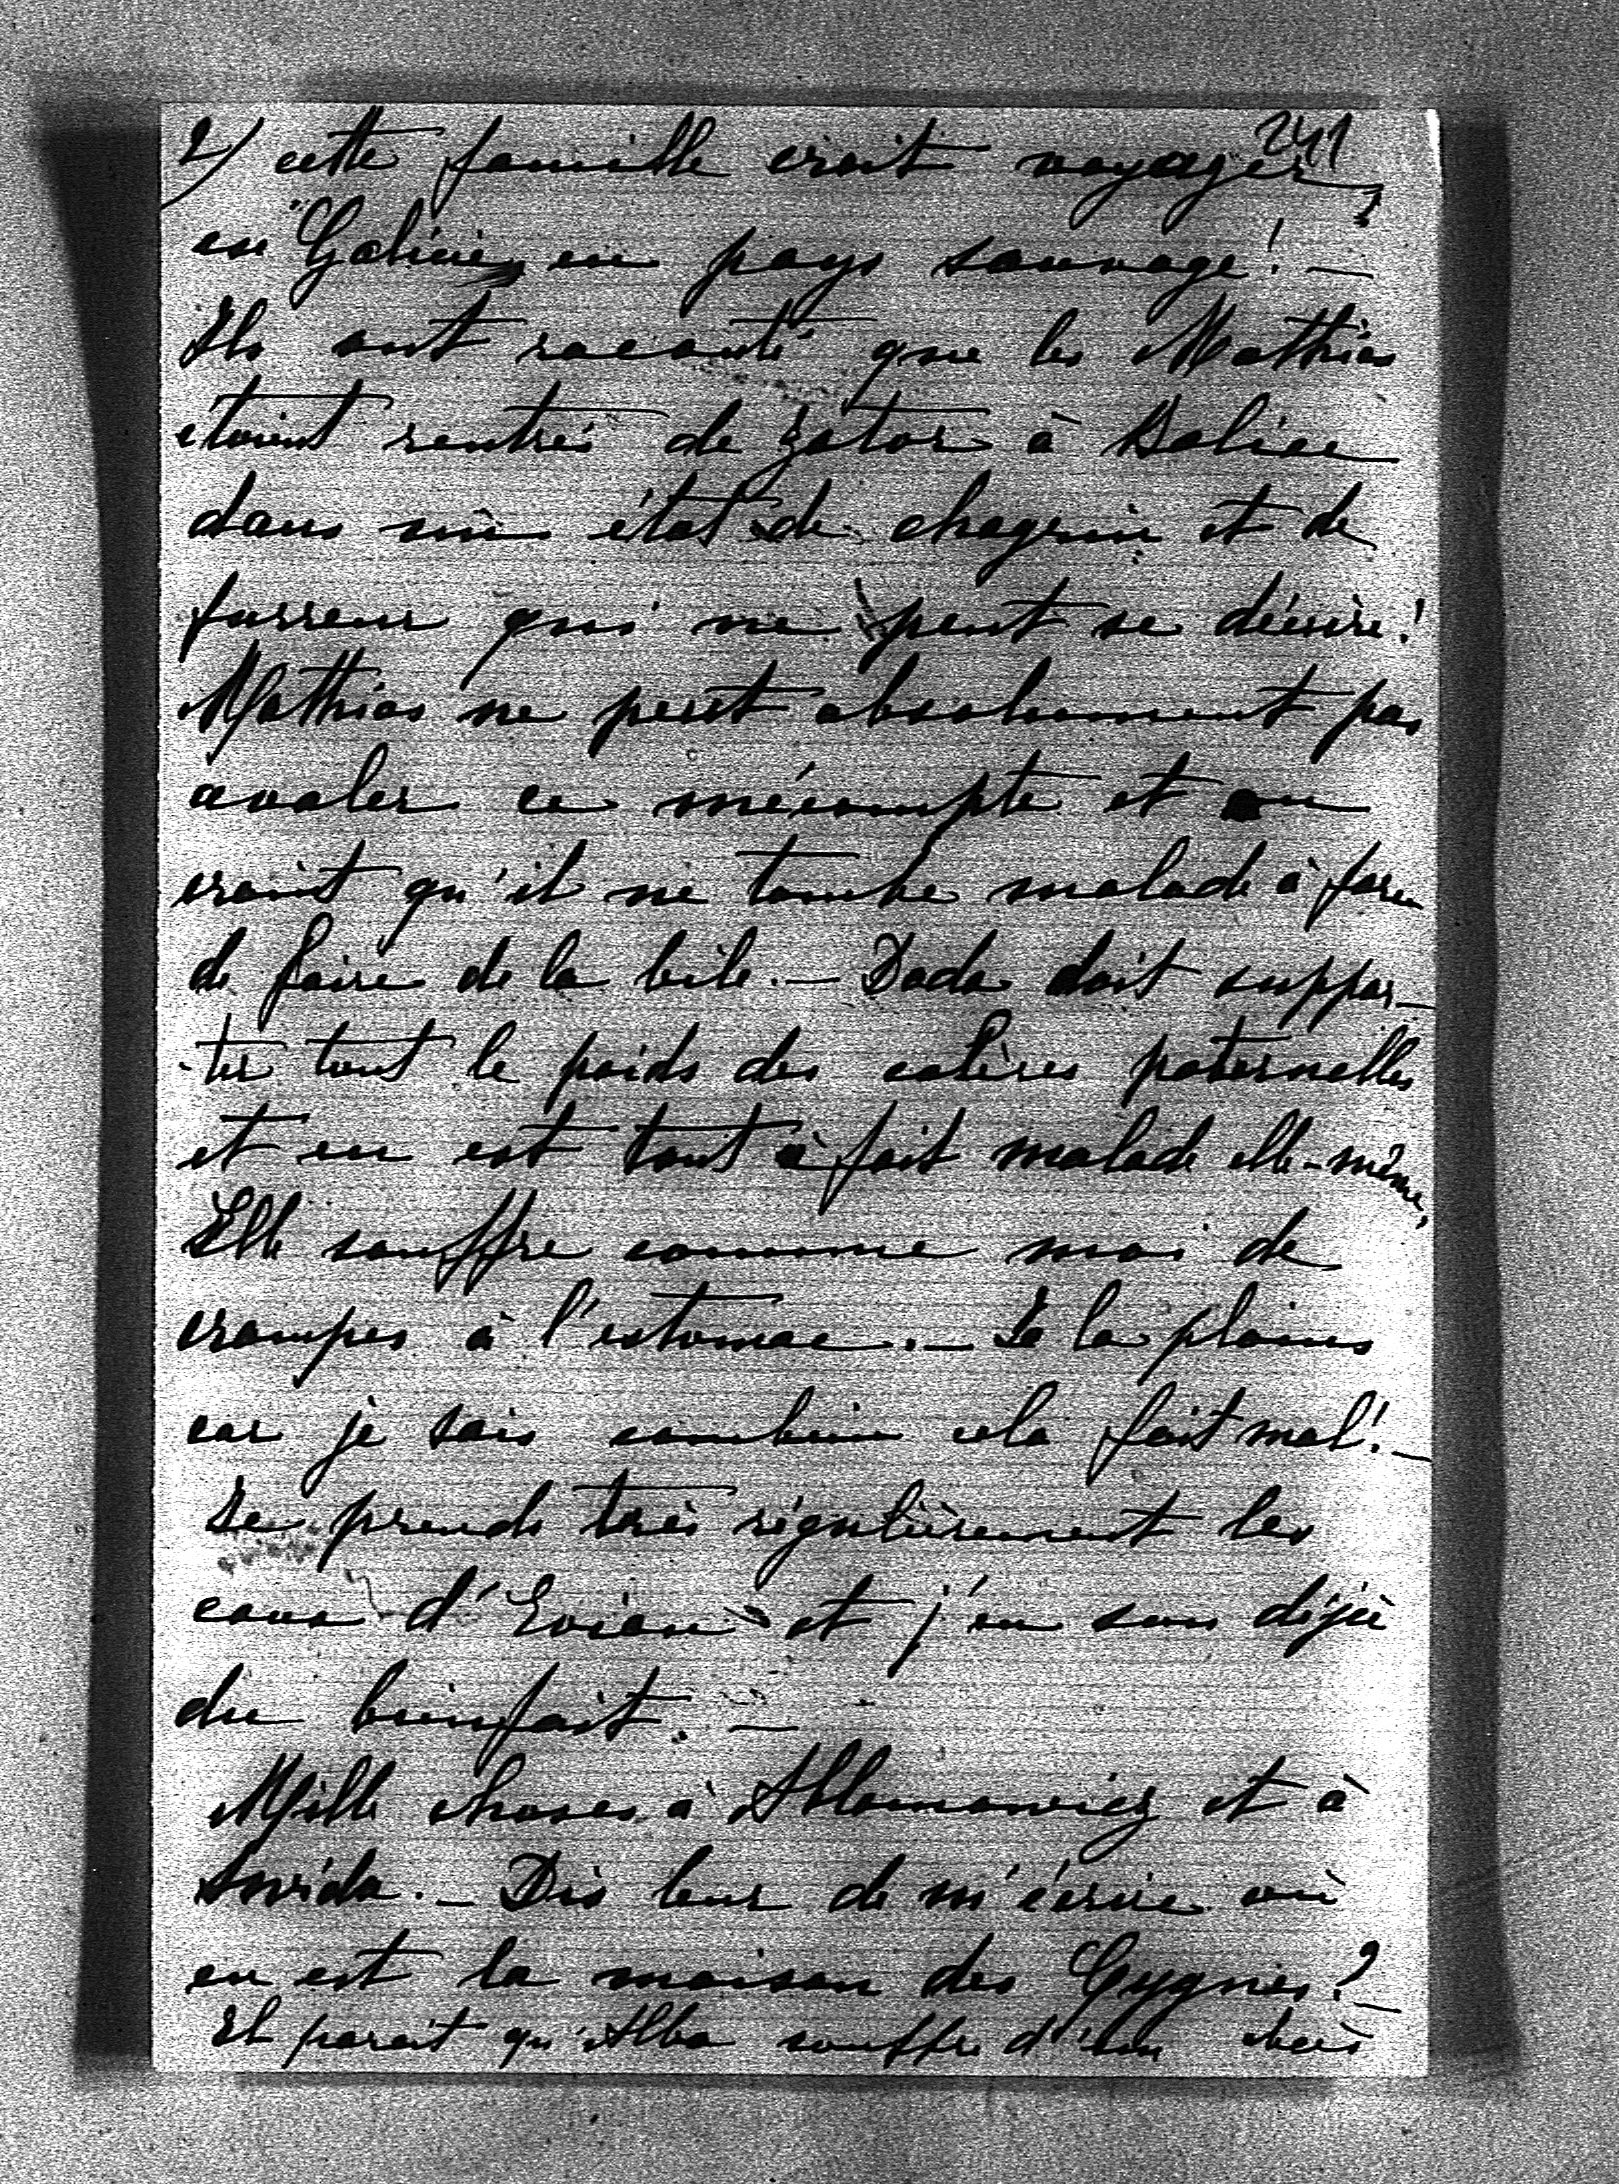 241
2) cette famille croit voyager
en "Galicie, en pays sauvage! —
Ils ont raconté que les Mathias
étaient rentrés de Zator à Balice
dans un état de chagrin et de
furreur qui ne peut se décrire!
Mathias ne peut absolument pas
avaler ce mécompte et on
craint qu'il ne tombe malade à force
de faire de la bile. — Dada doit suppor-
-ter tout le poids des colères paternelles
et en est tout à fait malade elle-même,
Elle souffre comme moi de
crampes à l'estomac. — Je la plains
car je sais combien cela fait mal! —
Je prends très régulièrement les
eaux d'Evian et j'en sens déjà
du bienfait. —
Mille choses à Ablamowicz et à
Swida. — Dis leur de m'écrire où
en est la maison des Cygnes? —
Il parait qu'Alba souffre d'un